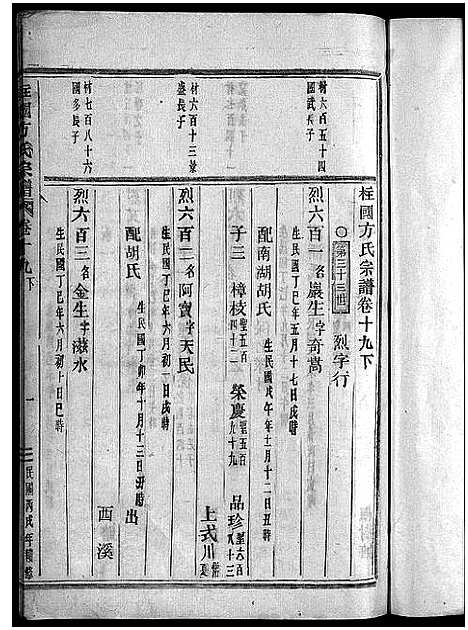 桂國方氏宗譜卷十九下
第三十三世 烈字行
材六百五十四
國武長子
烈六百一 名巖生 字奇嵩
生民國丁巳年五月十七日辰時
配南湖胡氏 生民國戊午年十二月十二日丑時
子三 樟枝 聖五百四十二 榮慶 聖五百九十九 品珍 聖六百八十三
材六百十三
盛長子
烈六百二 名阿寶 字天民 上式川
生民國丁巳年六月初一日戌時
配胡氏 生民國丁卯年十月十三日丑時 出
材七百八十六
國多長子
烈六百三 名金生 字滋水 西溪
生民國丁巳年六月初十日巳時
桂國方氏宗譜 卷十九下 一 民國丙戌年續修